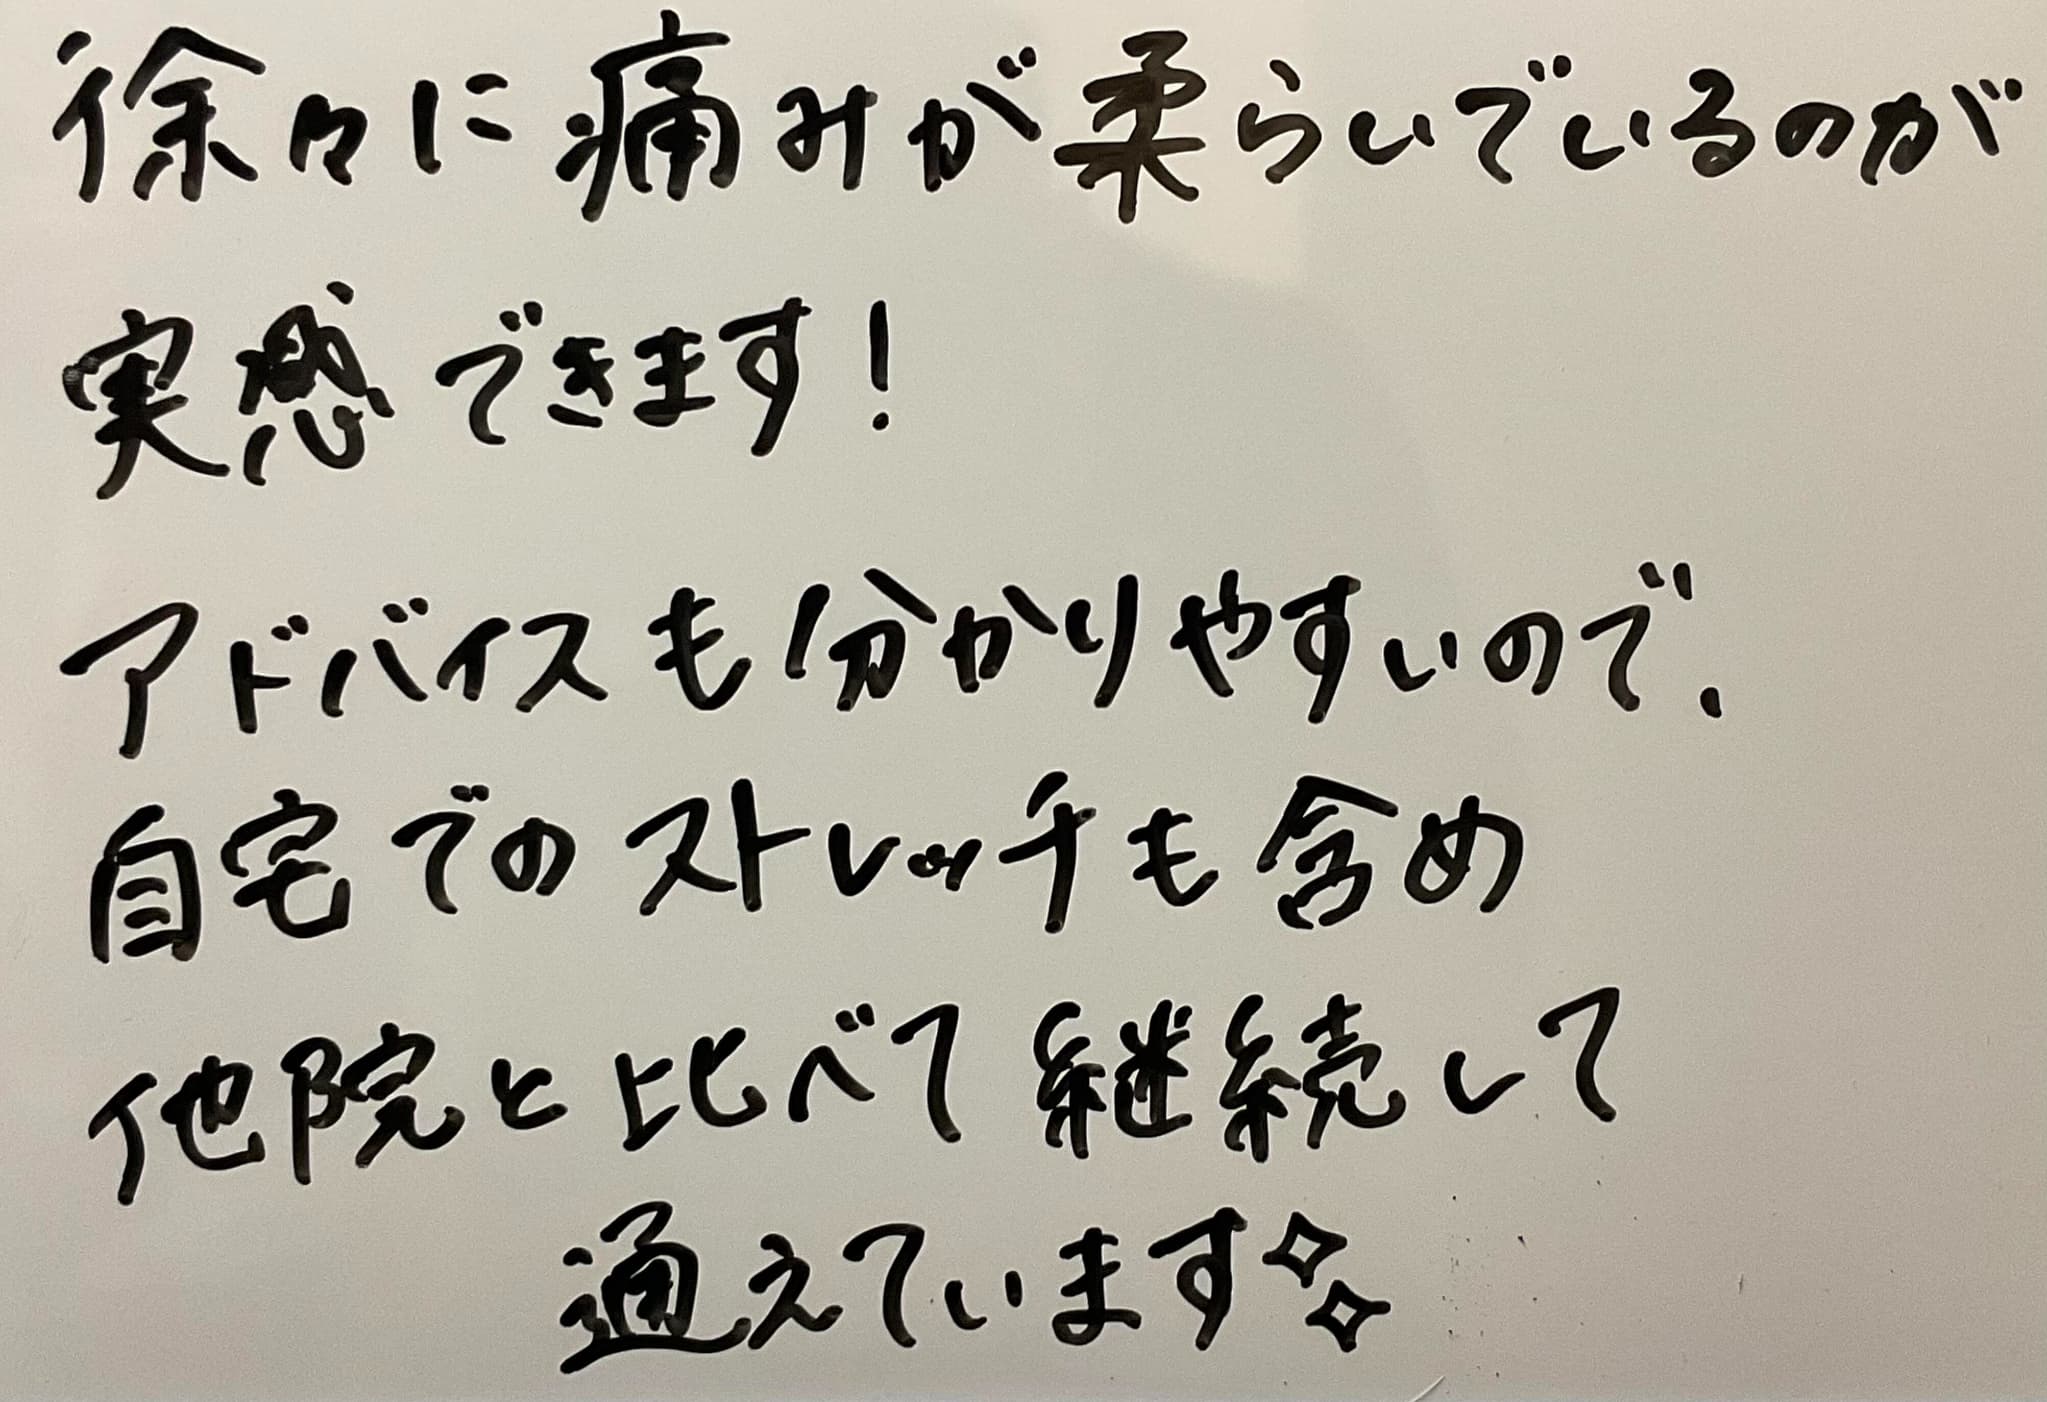 徐々に痛みが柔らいでいるのが
実感できます!
アドバイスも分かりやすいので、
自宅でのストレッチも含め
他院と比べて継続して
通えています